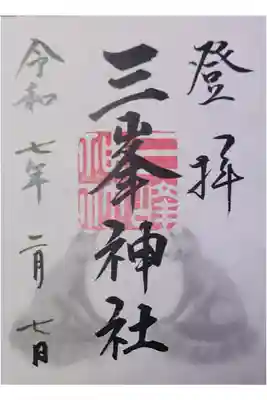 登拝
三峯神社
令和七年二月七日